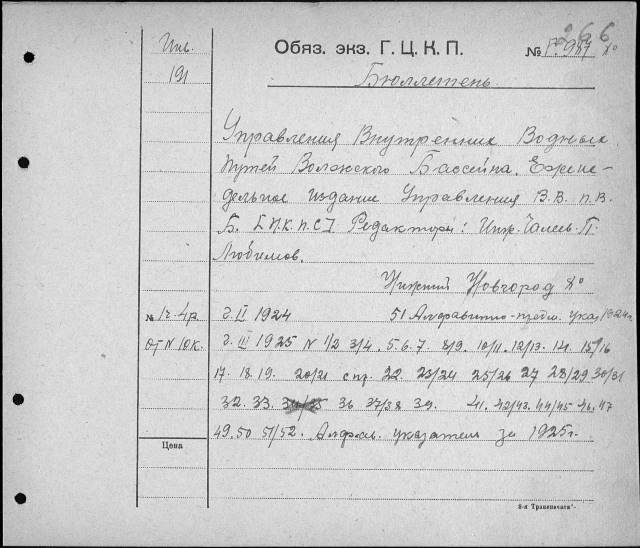 266
Инв.
191
Обяз. экз. Г. Ц. К. П.
№ Г. 987 8°
Бюллетень
Управления Внутренних Водных
Путей Волжского Бассейна. Ежене-
дельное издание Управления В. В. П. В.
Б. [Н.К.П.С] Редакторы: Инж. П.
Любимов.
Нижний Новгород 8°
№ 1г. 4р.
г. II 1924 51 Алфавитно-предм. указ. 1924г.
от № 10к.
г. III 1925 № 1/2 3/4. 5. 6. 7. 8/9. 10/11. 12/13. 14. 15/16
17. 18. 19. 20/21 с пр. 22 23/24 25/26 27 28/29 30/31
32. 33. 34/35 36 37/38 39. 41. 42/43. 44/45 46. 47
49. 50 51/52. Алфав. указатель за 1925г.
Цена
8-я Транспечать.